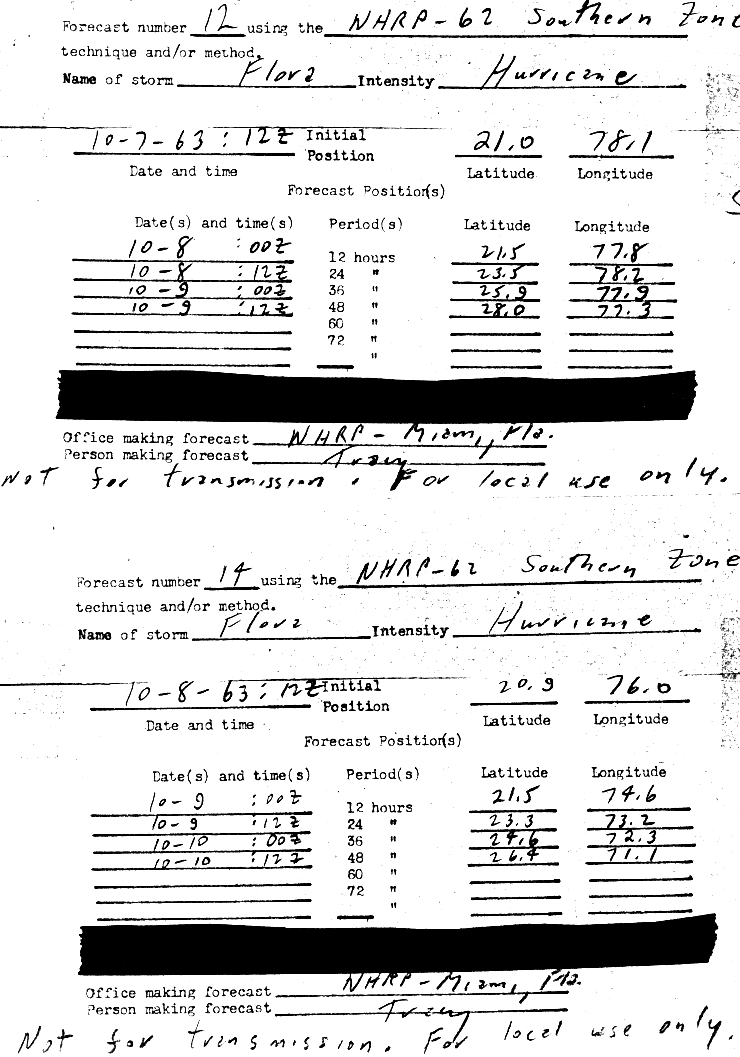 Forecast number 12 using the NHRP-62 Southern Zone
technique and/or method.
Name of storm Flora Intensity Hurricane
10-7-63 : 12Z Initial Position 21.0 78.1
Date and time Latitude Longitude
Forecast Position(s)
Date(s) and time(s) Period(s) Latitude Longitude
10-8 :00Z 12 hours 21.5 77.8
10-8 :12Z 24 " 23.5 78.2
10-9 :00Z 36 " 25.9 77.9
10-9 :12Z 48 " 28.0 77.3
60 "
72 "
"
Office making forecast NHRP-Miami, Fla.
Person making forecast Tracy
Not for transmission. For local use only.
Forecast number 14 using the NHRP-62 Southern Zone
technique and/or method.
Name of storm Flora Intensity Hurricane
10-8-63 : 12Z Initial Position 20.9 76.0
Date and time Latitude Longitude
Forecast Position(s)
Date(s) and time(s) Period(s) Latitude Longitude
10-9 :00Z 12 hours 21.5 74.6
10-9 :12Z 24 " 23.3 73.2
10-10 :00Z 36 " 24.6 72.3
10-10 :12Z 48 " 26.4 71.1
60 "
72 "
"
Office making forecast NHRP-Miami, Fla.
Person making forecast Tracy
Not for transmission. For local use only.